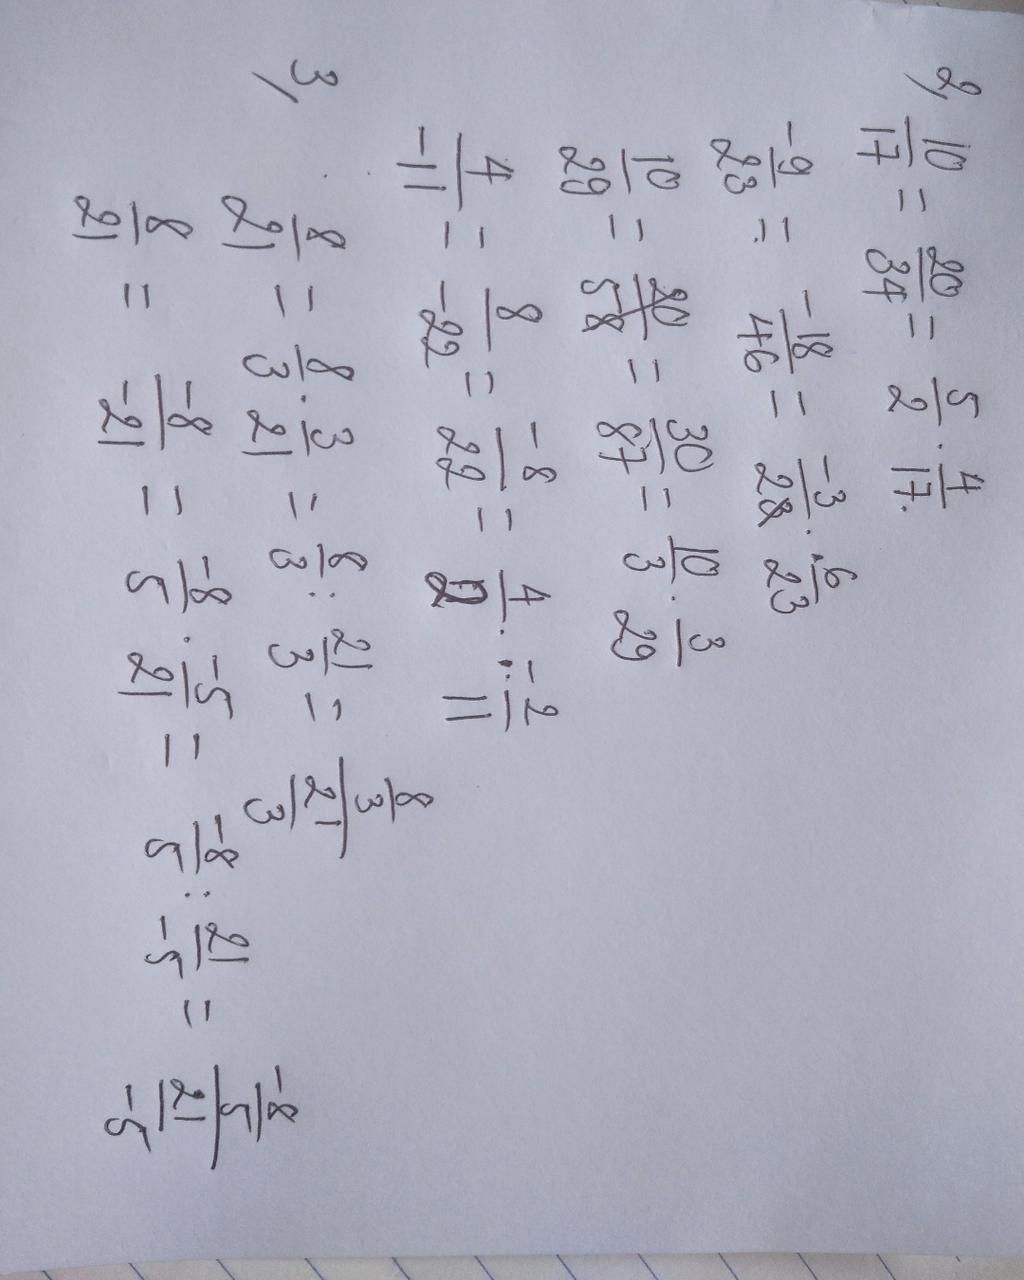 2) 10/17 = 20/34 = 5/2 · 4/17.
-9/23 = -18/46 = -3/2 · 6/23
10/29 = 20/58 = 30/87 = 10/3 · 3/29
4/-11 = 8/-22 = -8/22 = 4/2 · -2/11
3) 8/21 = 8/3 · 3/21 = 8/3 : 21/3 = (8/3)/(21/3)
8/21 = -8/-21 = -8/5 · -5/21 = -8/5 : 21/-5 = (-8/5)/(21/-5)